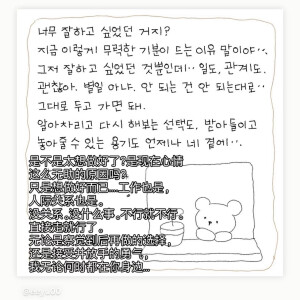 너무 잘하고 싶었던 거지?
지금 이렇게 무력한 기분이 드는 이유 말이야...
그저 잘하고 싶었던 것뿐인데... 일도, 관계도.
괜찮아. 별일 아냐. 안 되는 건 안 되는대로...
그대로 두고 가면 돼.
알아차리고 다시 해보는 선택도, 받아들이고
놓아줄 수 있는 용기도 언제나 네 곁에...
是不是太想做好了?是现在心情
这么无助的原因吗?
只是想做好而已...工作也是,
人际关系也是。
没关系。没什么事。不行就不行。
直接走就行了。
无论是察觉到后再做的选择,
还是接受并放手的勇气,
我无论何时都在你身边...